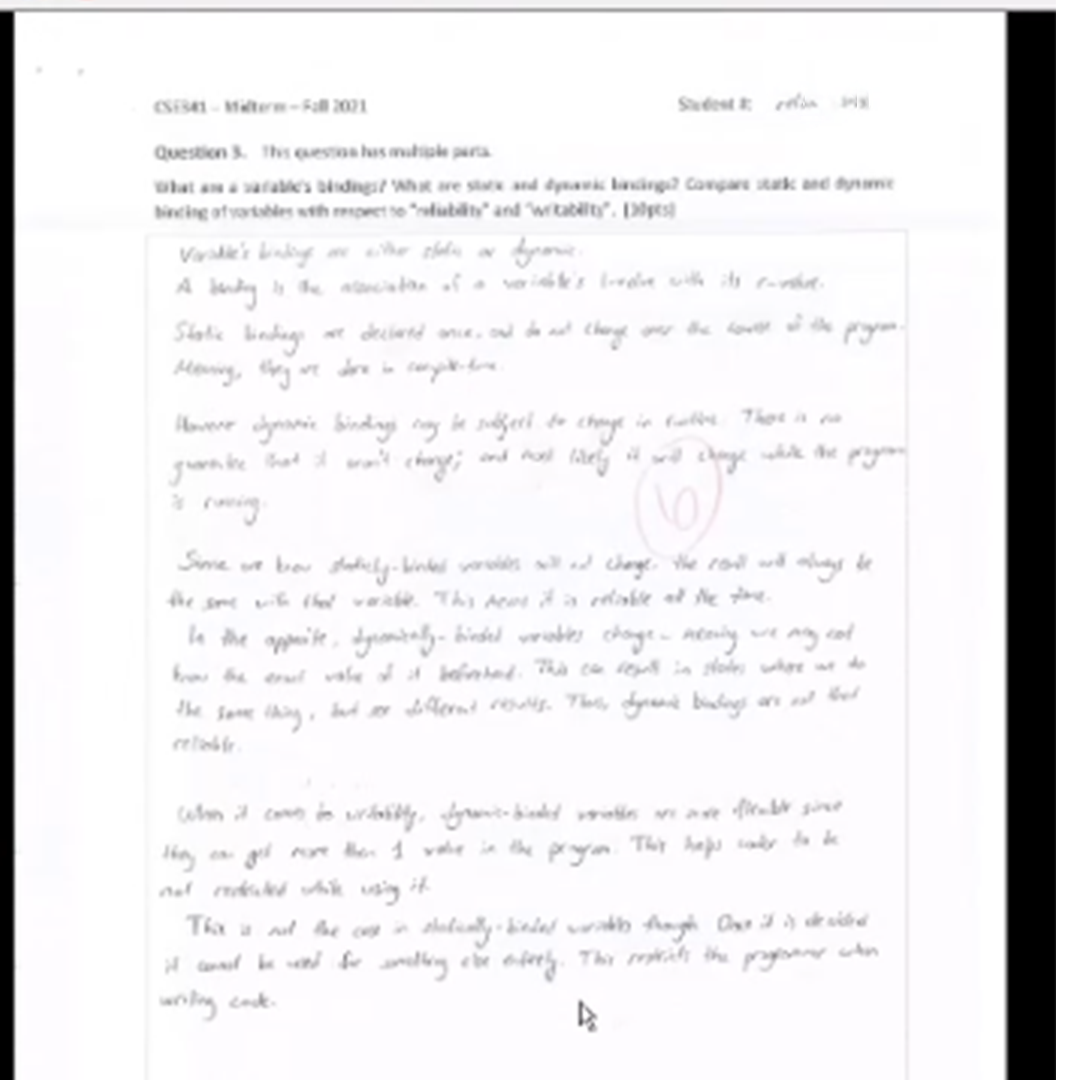 CSE341 – Midterm – Fall 2021
Student #:
Question 3. This question has multiple parts.
What are a variable's bindings? What are static and dynamic bindings? Compare static and dynamic
binding of variables with respect to "reliability" and "writability". [10pts]
Variable's bindings are either static or dynamic.
A binding is the association of a variable's l-value with its r-value.
Static bindings are declared once, and do not change over the course of the program.
Meaning, they are done in compile-time.
However dynamic bindings may be subject to change in runtime. There is no
guarantee that it won't change; and most likely it will change while the program
is running.
6
Since we know staticly-binded variables will not change. The result will always be
the same with that variable. This means it is reliable all the time.
In the opposite, dynamically-binded variables change - meaning we may not
know the exact value of it beforehand. This can result in states where we do
the same thing, but see different results. Thus, dynamic bindings are not that
reliable.
When it comes to writability, dynamic-binded variables are more flexible since
they can get more than 1 value in the program. This helps coder to be
not restricted while using it.
This is not the case in statically-binded variables though. Once it is decided
it cannot be used for something else entirely. This restricts the programmer when
writing code.